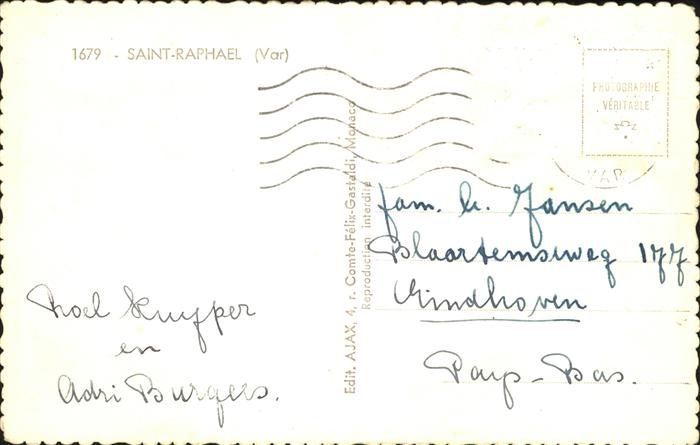 1679 - SAINT-RAPHAEL (Var)
PHOTOGRAPHIE
VÉRITABLE
VAR
Edit. AJAX, 4, r. Comte-Félix-Gastaldi, Monaco
Reproduction interdite
fam. h. Jansen
Blaartemseweg 177
Eindhoven
Pays-Bas.
Roel Kuyper
en
Adri Burgers.